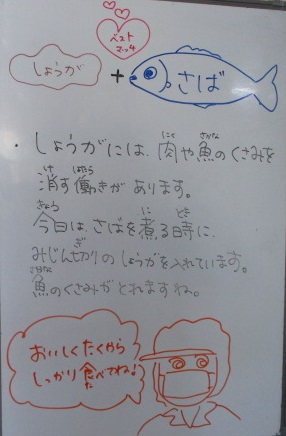 ベスト
マッチ
しょうが + さば
・しょうがには、肉や魚のくさみを
消す働きがあります。
今日は、さばを煮る時に、
みじん切りのしょうがを入れています。
魚のくさみがとれますね。
おいしくたくから
しっかり食べてね!